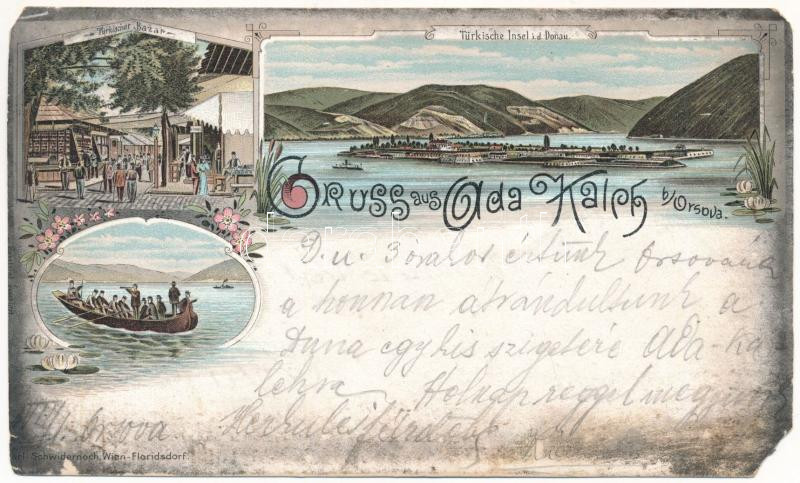 Türkischer Bazar
Türkische Insel i.d. Donau.
Gruss aus Ada Kaleh b/Orsova.
D. u. 3 órakor értünk Orsovára
a honnan átrándultunk a
Duna egy kis szigetére Ada-Ka
lehra. Holnap reggel megyünk
Orsova Herkulesfürdőbe
Schwidernoch, Wien-Floridsdorf.